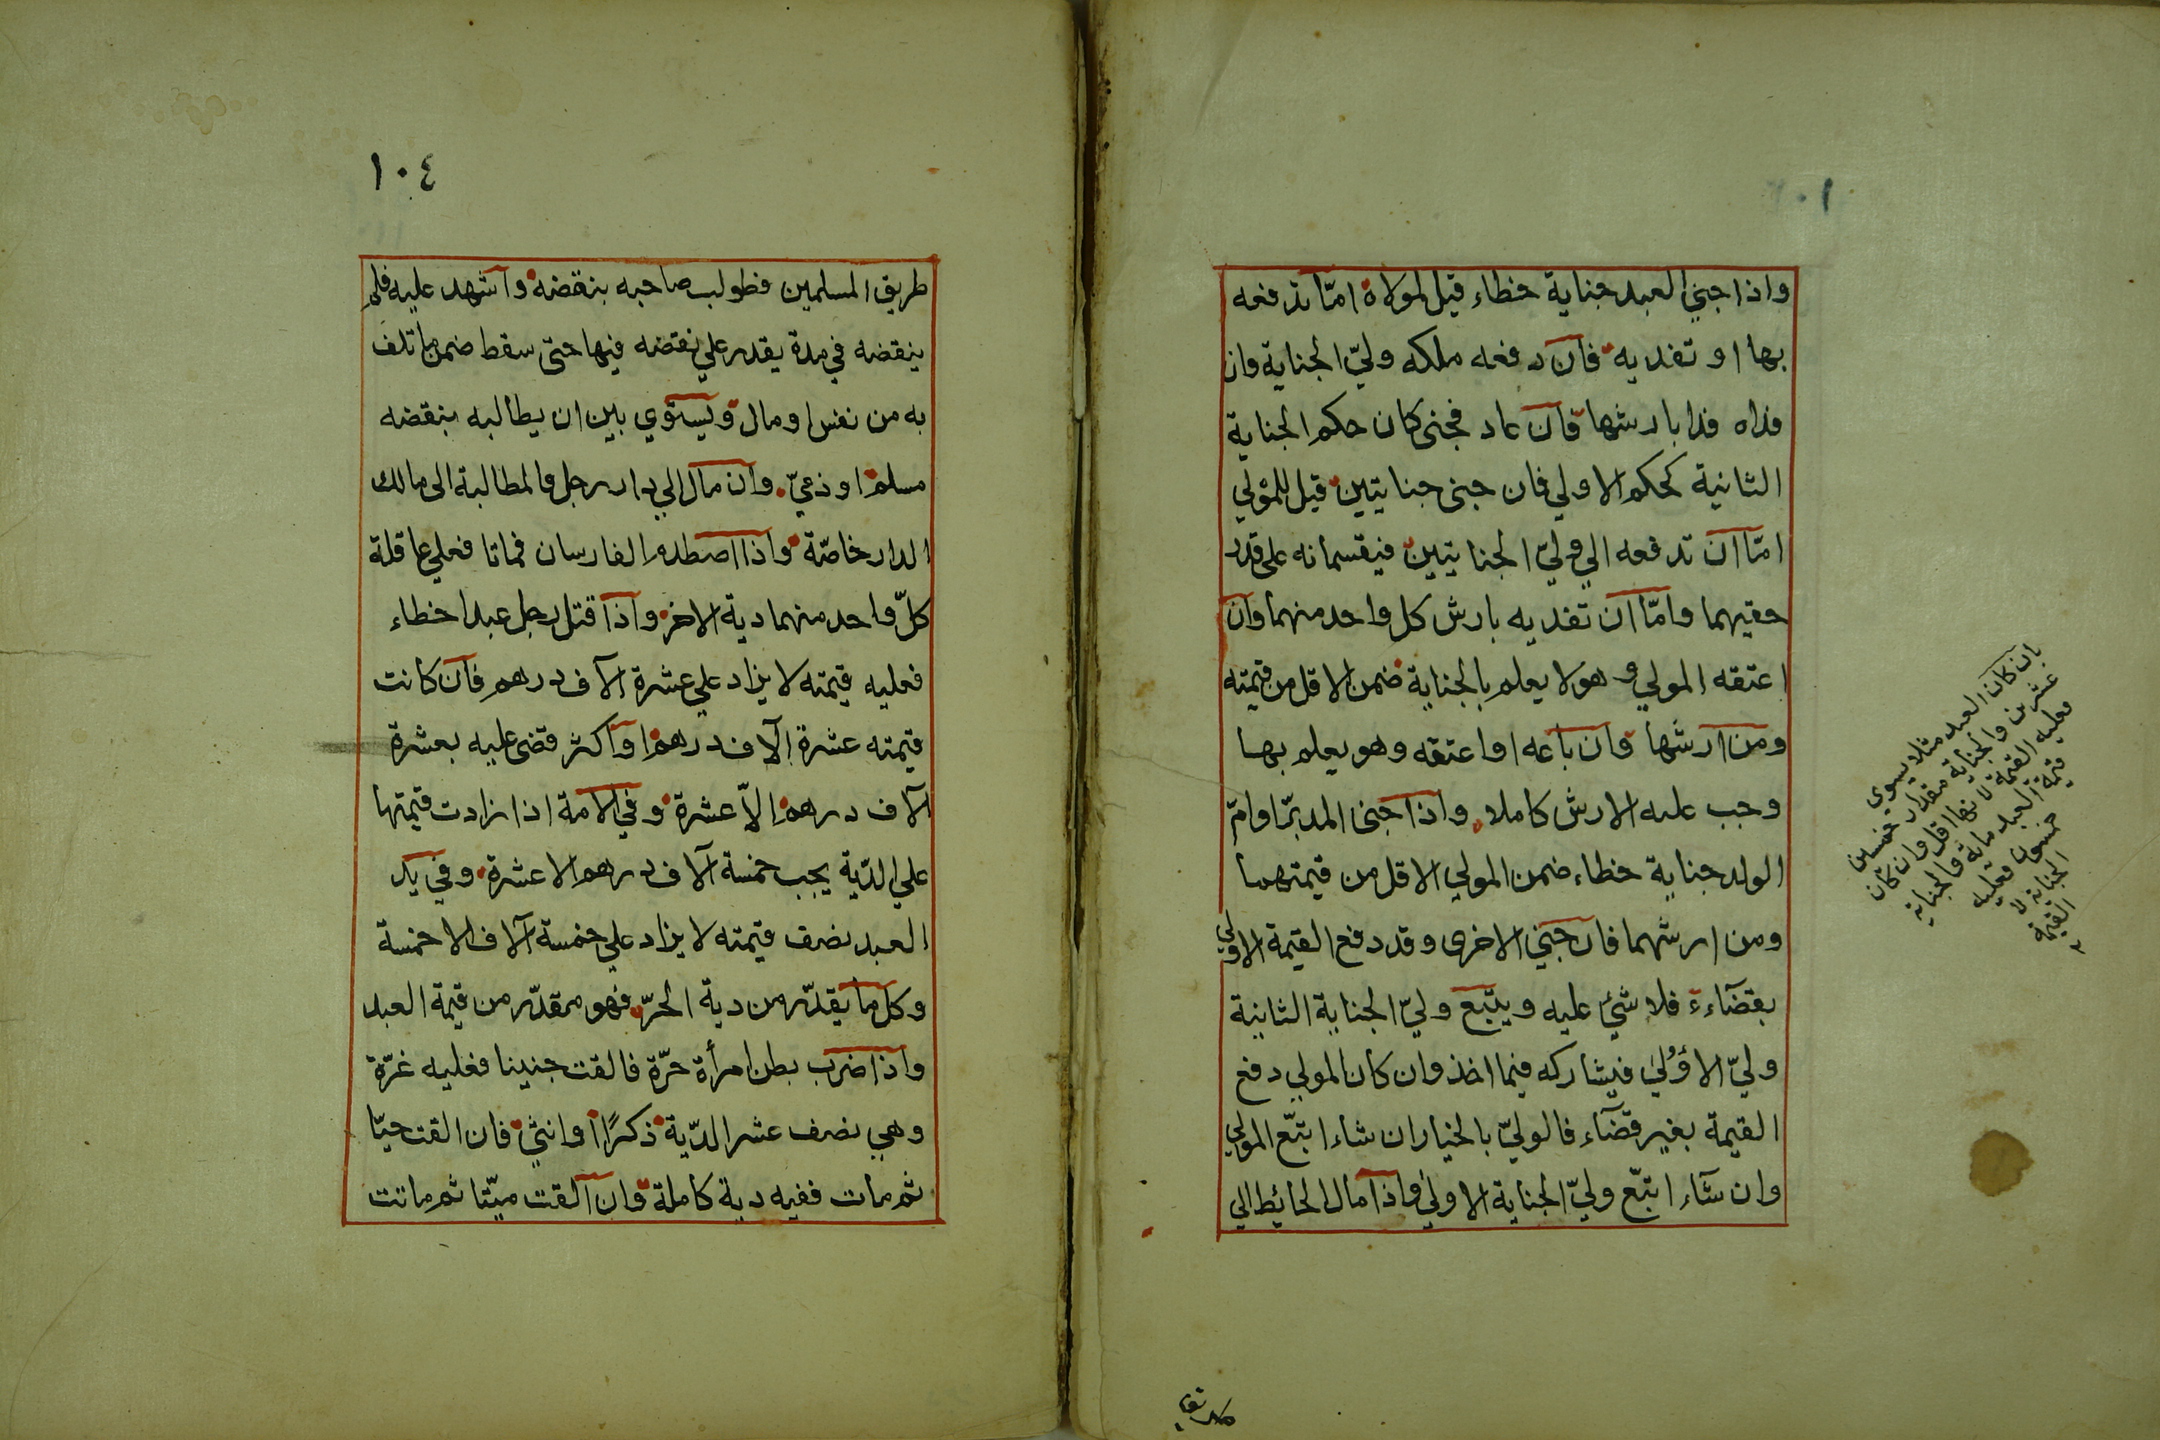 واذا جني العبد جناية خطاء قيل لمولاه امّا تدفعه
بها او تفديه فان دفعه ملكه وليّ الجناية وان
فداه فدا بارشها فان عاد فجنى كان حكم الجناية
الثانية كحكم الاولي فان جنى جنايتين قيل للمولي
امّا ان تدفعه الي وليّ الجنايتين فيقسمانه على قدر
حقيهما وامّا ان تفديه بارش كل واحد منهما وان
اعتقه المولي وهو لا يعلم بالجناية ضمن الاقل من قيمته
ومن ارشها وان باعه او اعتقه وهو يعلم بها
وجب عليه الارش كاملا واذا جنى المدبّر او امّ
الولد جناية خطاء ضمن المولي الاقل من قيمتهما
ومن ارشهما فان جني الاخرى وقد دفع القيمة الاولي
بقضآء فلا شئ عليه ويتّبع وليّ الجناية الثانية
وليّ الاولي فيشاركه فيما اخذ وان كان المولي دفع
القيمة بغير قضآء فالوليّ بالخيار ان شاء اتبّع المولي
وان شآء اتبّع وليّ الجناية الاولي واذا مال الحائط الي
بان كان العبد مثلا يسوي
عشرين والجناية مقدار خمسين
فعليه القيمة لانها اقل وان كان
قيمة العبد مائة والجناية
خمسون فعليه
الجناية لا
القيمة
١٠٤
طريق المسلمين فطولب صاحبه بنقضه واشهد عليه فلم
ينقضه في مدة يقدر علي نقضه فيها حتى سقط ضمن ما تلف
به من نفس او مال ويستوي بين ان يطالبه بنقضه
مسلم او ذميّ وان مال الي دار رجل فالمطالبة الى مالك
الدار خاصّة واذا اصطدم الفارسان فماتا فعلي عاقلة
كلّ واحد منهما دية الاخر واذا قتل رجل عبدا خطاء
فعليه قيمته لا يزاد علي عشرة الآف درهم فان كانت
قيمته عشرة الآف درهم او اكثر قضى عليه بعشرة
الآف درهم الاّ عشرة وفي الامة اذا زادت قيمتها
علي الدّية يجب خمسة آلاف درهم الا عشرة وفي يد
العبد نصف قيمته لا يزاد علي خمسة آلاف الا خمسة
وكل ما يقدّر من دية الحرّ فهو مقدّر من قيمة العبد
واذا ضرب بطن امرأة حرّة فالقت جنينا فعليه غرّة
وهي نصف عشر الدّية ذكرًا او انثي فان القت حيّا
ثم مات ففيه دية كاملة وان القت ميّتا ثم ماتت